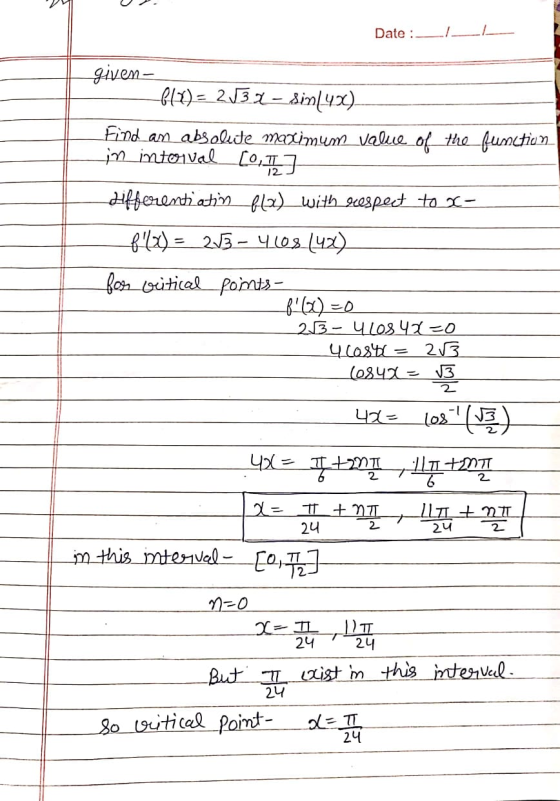 Date :___/___/___
given-
f(x) = 2√3 x - sin(4x)
Find an absolute maximum value of the function
in interval [0, π/12]
differentiatin f(x) with respect to x-
f'(x) = 2√3 - 4cos(4x)
for critical points-
f'(x) = 0
2√3 - 4cos4x = 0
4cos4x = 2√3
cos4x = √3/2
4x = cos⁻¹(√3/2)
4x = π/6 + 2nπ/2 , 11π/6 + 2nπ/2
x = π/24 + nπ/2 , 11π/24 + nπ/2
in this interval- [0, π/12]
n=0
x = π/24 , 11π/24
But π/24 exist in this interval.
So critical point- x = π/24